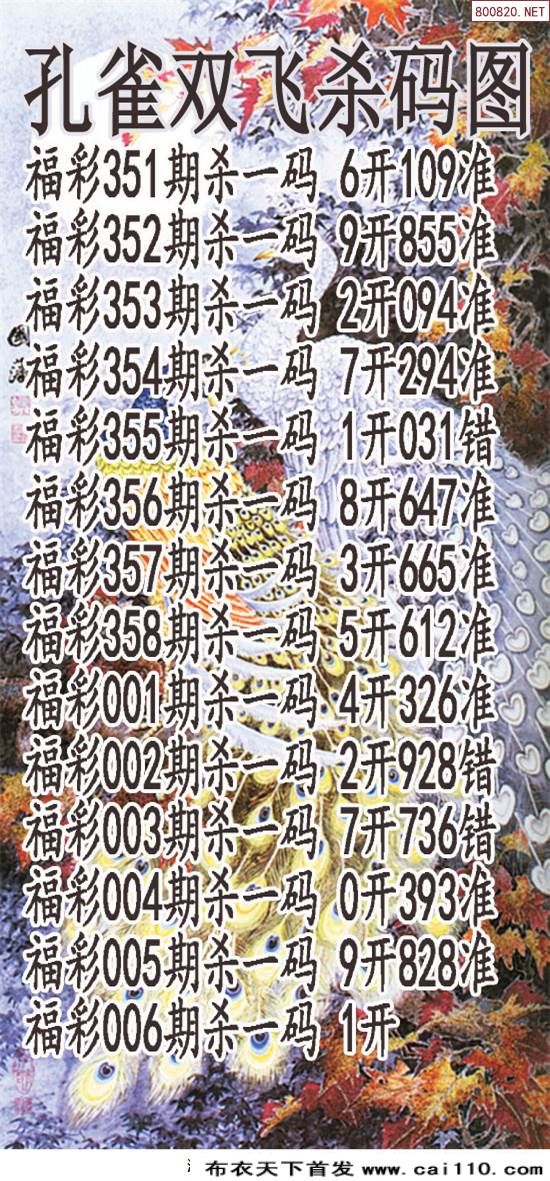 800820.NET
孔雀双飞杀码图
福彩351期杀一码 6开109准
福彩352期杀一码 9开855准
福彩353期杀一码 2开094准
福彩354期杀一码 7开294准
福彩355期杀一码 1开031错
福彩356期杀一码 8开647准
福彩357期杀一码 3开665准
福彩358期杀一码 5开612准
福彩001期杀一码 4开326准
福彩002期杀一码 2开928错
福彩003期杀一码 7开736错
福彩004期杀一码 0开393准
福彩005期杀一码 9开828准
福彩006期杀一码 1开
布衣天下首发 www.cai110.com